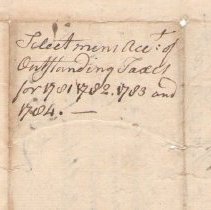 Selectmens Acct. of
Outstanding Taxes
for 1781 1782. 1783 and
1784. —